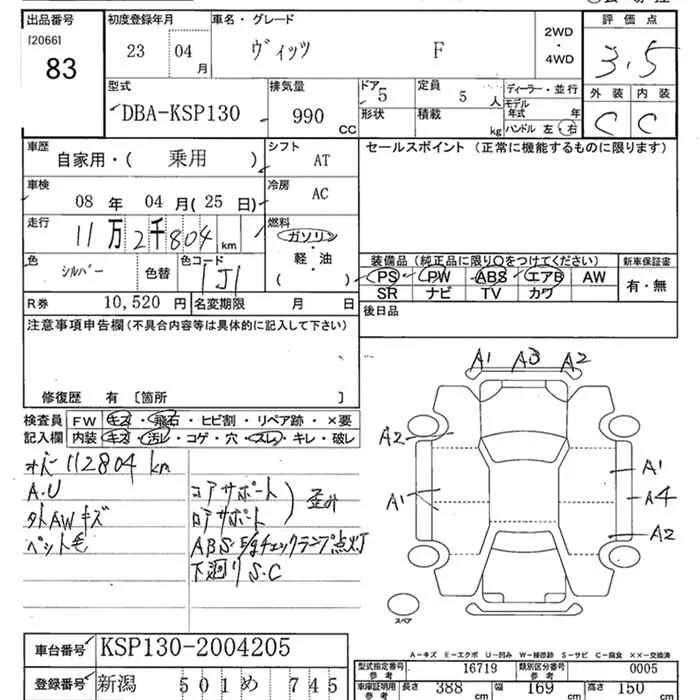 出品番号
[2066]
83
初度登録年月
23 04 月
車名・グレード
ヴィッツ F
2WD
・
4WD
評価点
3.5
型式
DBA-KSP130
排気量
990 CC
ドア
5
形状
定員
5 人
積載
kg
ディーラー・並行
モデル年式 年
ハンドル 左・右
外装 内装
C C
車歴
自家用・( 乗用 )
シフト
AT
セールスポイント (正常に機能するものに限ります)
車検
08 年 04 月(25 日)
冷房
AC
走行
11万2千804 km
燃料
ガソリン
・
軽・油
( )
色
シルバー
色替
色コード
1J1
装備品 (純正品に限り○をつけてください)
新車保証書
PS PW ABS エアB AW
SR ナビ TV カワ
有・無
R券 10,520 円
名変期限 月 日
後日品
注意事項申告欄(不具合内容等は具体的に記入して下さい)
修復歴 有 [箇所 ]
検査員記入欄
FW キズ・飛石・ヒビ割・リペア跡・×要
内装 キズ・汚レ・コゲ・穴・スレ・キレ・破レ
112804 km
A.U
外AWキズ
ペット毛
コアサポート
ロアサポート
歪み
ABS・E/gチェックランプ点灯
下廻りS・C
A1 A3 A2
A2
A1
A1
A4
A2
スペア
A-キズ E-エクボ U-凹み W-補修跡 S-サビ C-腐食 ××-交換済
車台番号
KSP130-2004205
登録番号
新潟 501 め 745
型式指定番号 参考
16719
類別区分番号 参考
0005
車庫証明用 参考
長さ 388 cm
幅 169 cm
高さ 150 cm